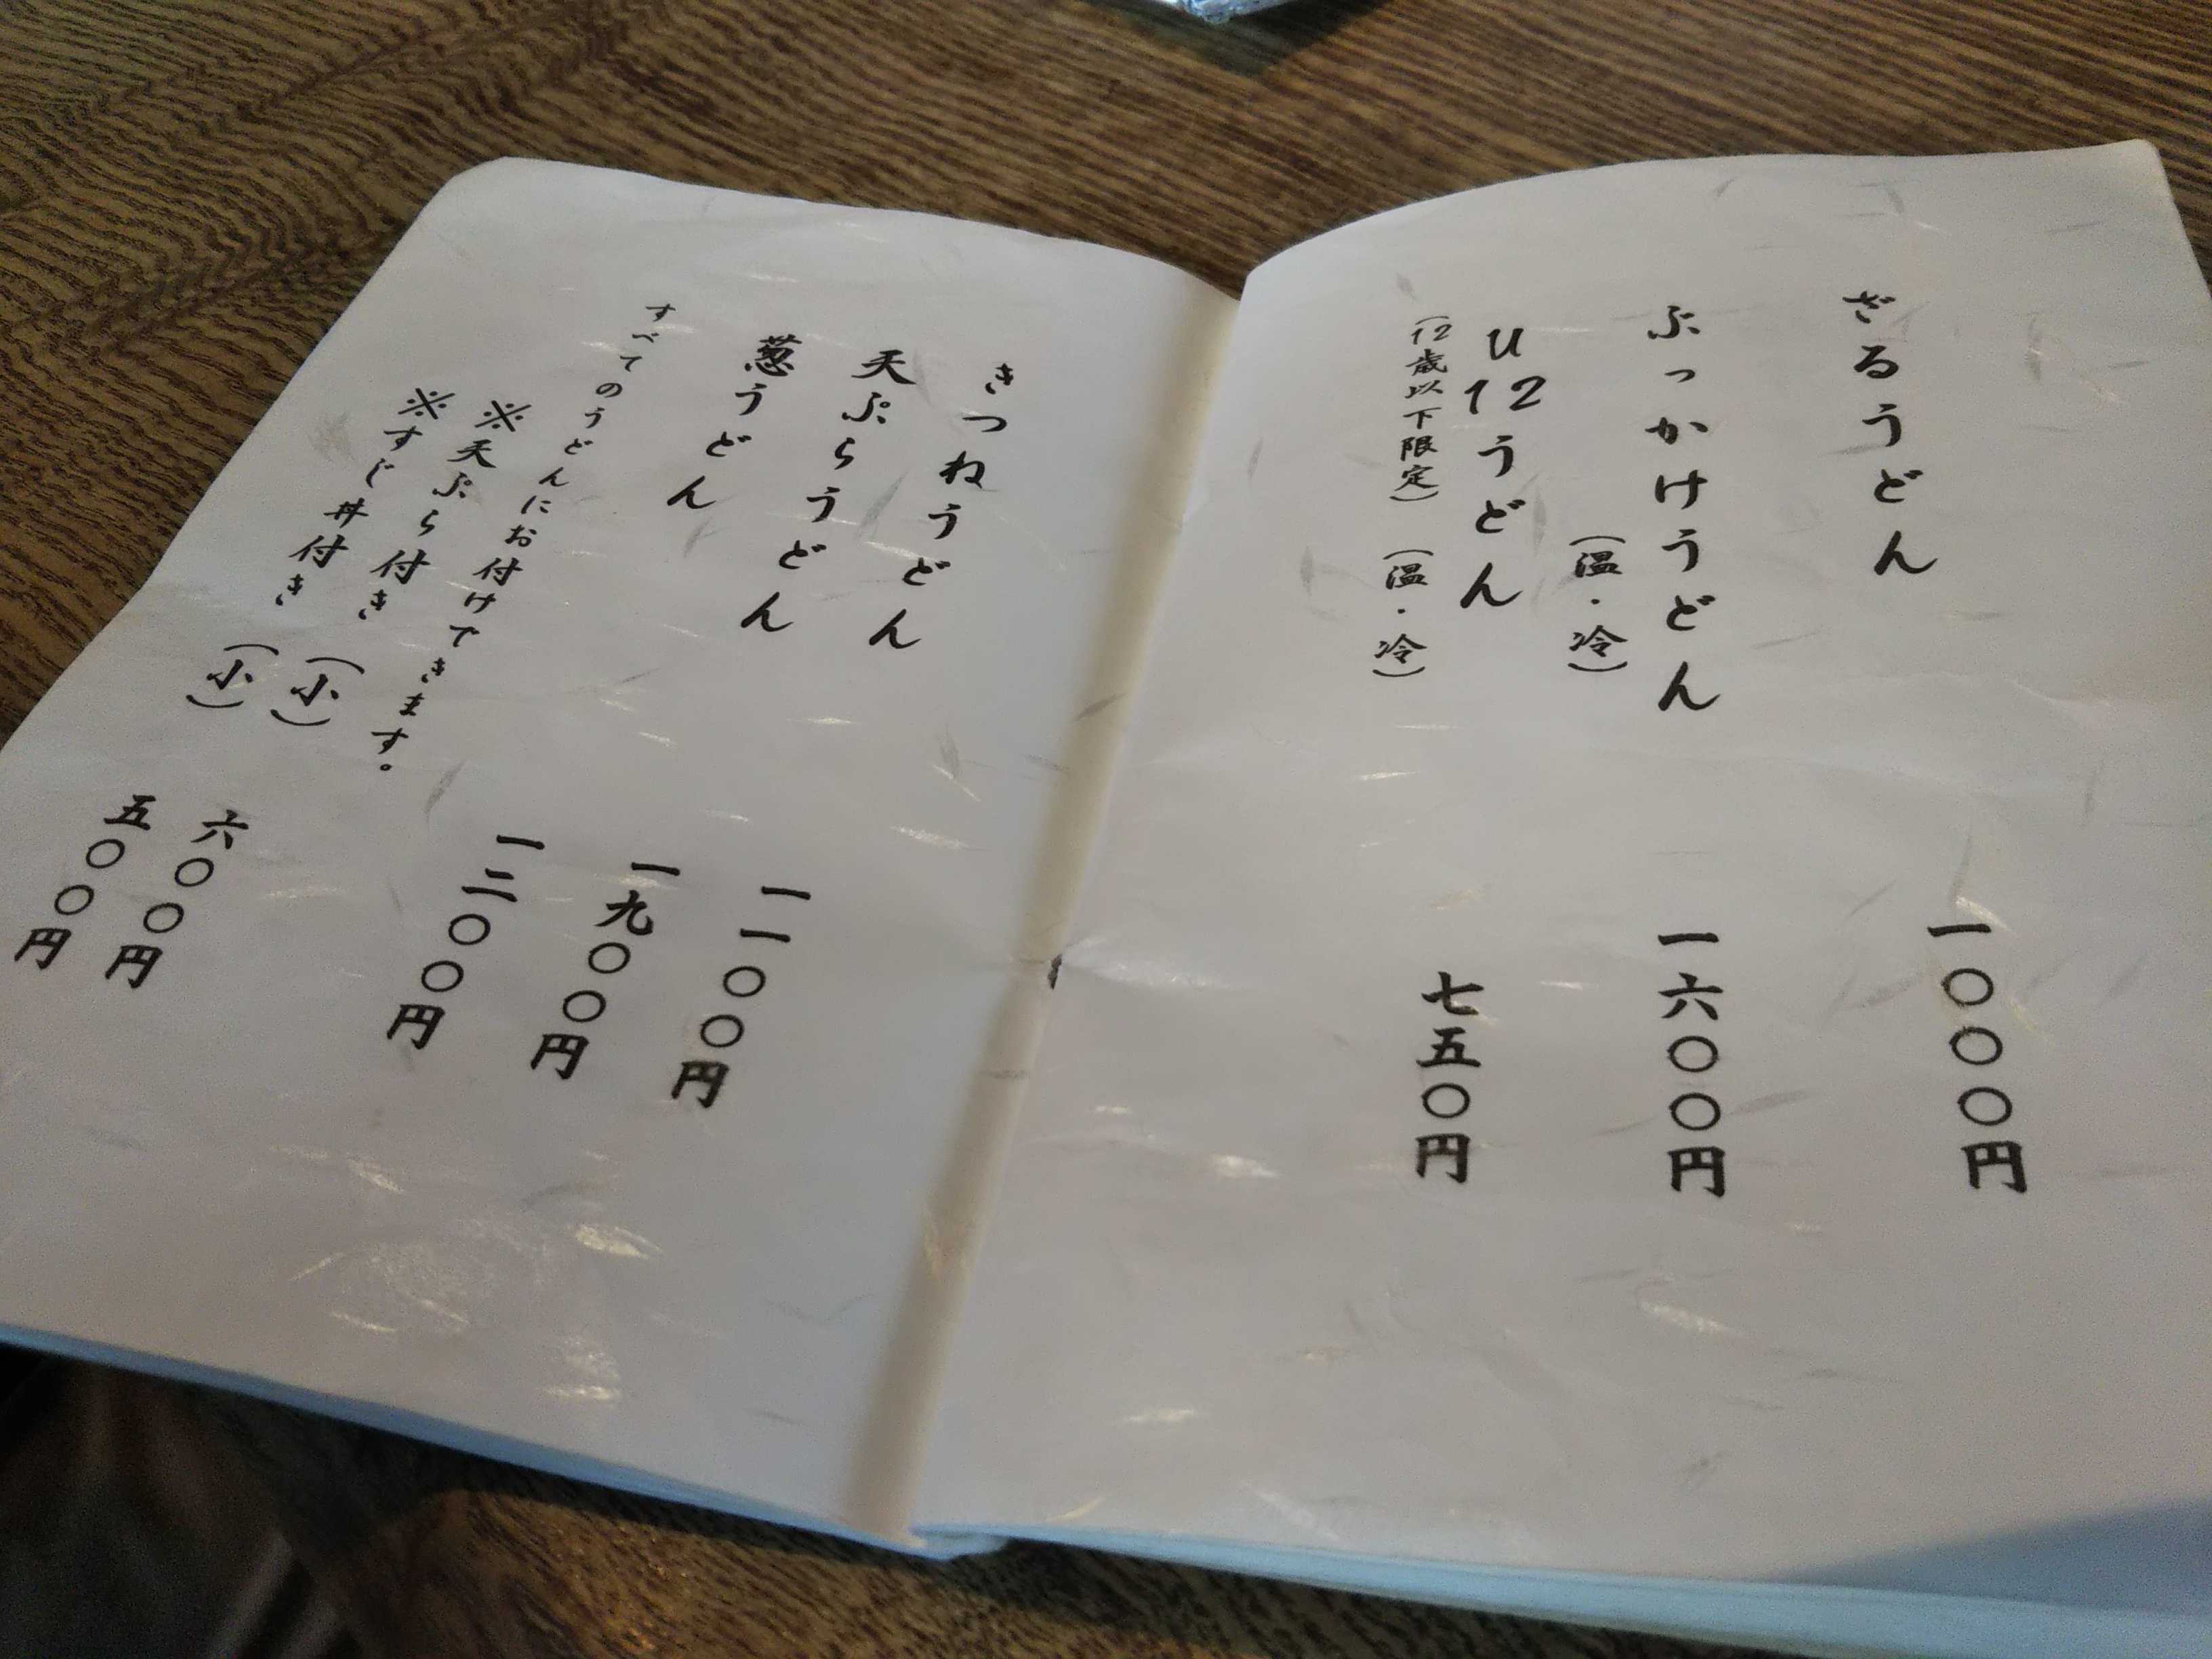 ざるうどん 一〇〇〇円
ぶっかけうどん 一六〇〇円
(温・冷)
U12うどん 七五〇円
(12歳以下限定) (温・冷)
きつねうどん 一一〇〇円
天ぷらうどん 一九〇〇円
葱うどん 一二〇〇円
すべてのうどんにお付けできます。
※天ぷら付き (小) 六〇〇円
※すじ丼付き (小) 五〇〇円